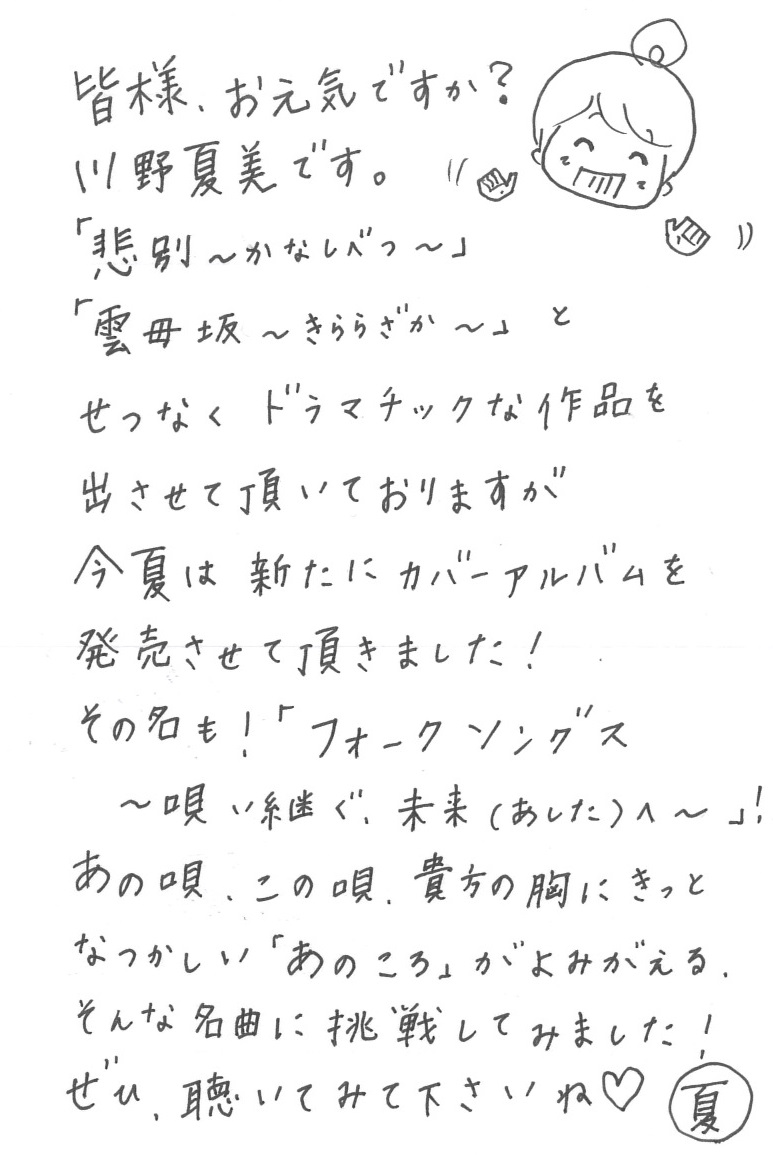 皆様、お元気ですか?
川野夏美です。
「悲別~かなしべつ~」
「雲母坂~きららざか~」と
せつなくドラマチックな作品を
出させて頂いておりますが
今夏は新たにカバーアルバムを
発売させて頂きました!
その名も!「フォークソングス
~唄い継ぐ、未来(あした)へ~」!
あの唄、この唄、貴方の胸にきっと
なつかしい「あのころ」がよみがえる、
そんな名曲に挑戦してみました!
ぜひ、聴いてみて下さいね♡ 夏